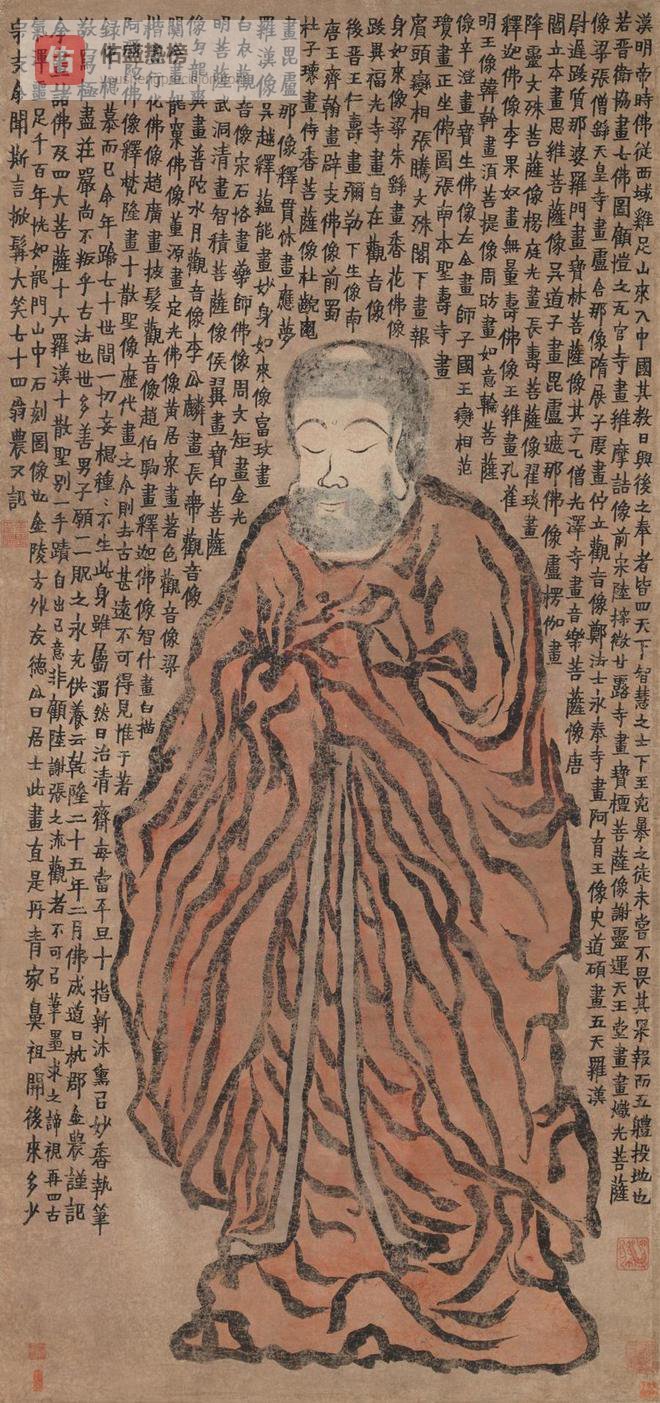 漢明帝時佛從西域雞足山來入中國其教日興後之奉者皆四天下智慧之士下至兇暴之徒未嘗不畏其果報而五體投地也
若晉衛協畫七佛圖顧愷之瓦官寺畫維摩詰像前宋陸探微甘露寺畫寶檀菩薩像謝靈運天王堂畫畫熾光菩薩
像梁張僧繇天皇寺畫盧舍那像隋展子虔畫佇立觀音像鄭法士永泰寺畫阿育王像史道碩畫五天羅漢
尉遲跋質那婆羅門畫寶林菩薩像其子乙僧光澤寺畫音樂菩薩像唐
閻立本畫思維菩薩像吳道子畫毘盧遮那佛像盧楞伽畫
降靈文殊菩薩像楊庭光畫長壽菩薩像翟琰畫
釋迦佛像李果奴畫無量壽佛像王維畫孔雀
明王像韓幹畫須菩提像周昉畫如意輪菩薩
像辛澄畫寶生佛像左全畫師子國王變相范
瓊畫正坐佛圖張南本聖壽寺畫
賓頭變相張騰文殊閣下畫報
身如來像梁朱繇畫香花佛像
跋異福光寺畫自在觀音像
後晉王仁壽畫彌勒下生像南
唐王齊翰畫辟支佛像前蜀
杜子瓌畫侍香菩薩像杜齯龜
畫毘盧那像釋貫休畫應夢
羅漢像吳越釋蘊能畫妙身如來像富玫畫
白衣觀音像宋石恪畫藥師佛像周文矩畫金光
明菩薩像武洞清畫智積菩薩像侯翼畫寶印菩薩
像勾龍爽畫普陀水月觀音像李公麟畫長帶觀音像
關畫龍窠佛像董源畫定光佛像黃居寀畫著色觀音像梁
楷畫行化佛像趙廣畫披髮觀音像趙伯駒畫釋迦佛像智什畫白描
阿彌陀佛像釋梵隆畫十散聖像歷代畫之今則去古甚遠不可得見惟于著
錄中想慕而已余年踰七十世間一切妄想種種不生此身雖屬濁然日治清齋每當平旦十指新沐熏以妙香執筆
敬寫極盡莊嚴尚不叛乎古法也世多善男子願一賑之永充供養云乾隆二十五年二月佛成道日杭郡金農謹記
余畫諸佛及四大菩薩十六羅漢十散聖別一手蹟自出己意非顧陸謝張之流觀者不可以筆墨求之諦視再四古
氣渾噩足千百年恍如龍門山中石刻圖像也金陵方外友德公曰居士此畫直是丹青家鼻祖開後來多少
宗支余聞斯言掀髯大笑七十四翁農又記
佑
佑盛热榜